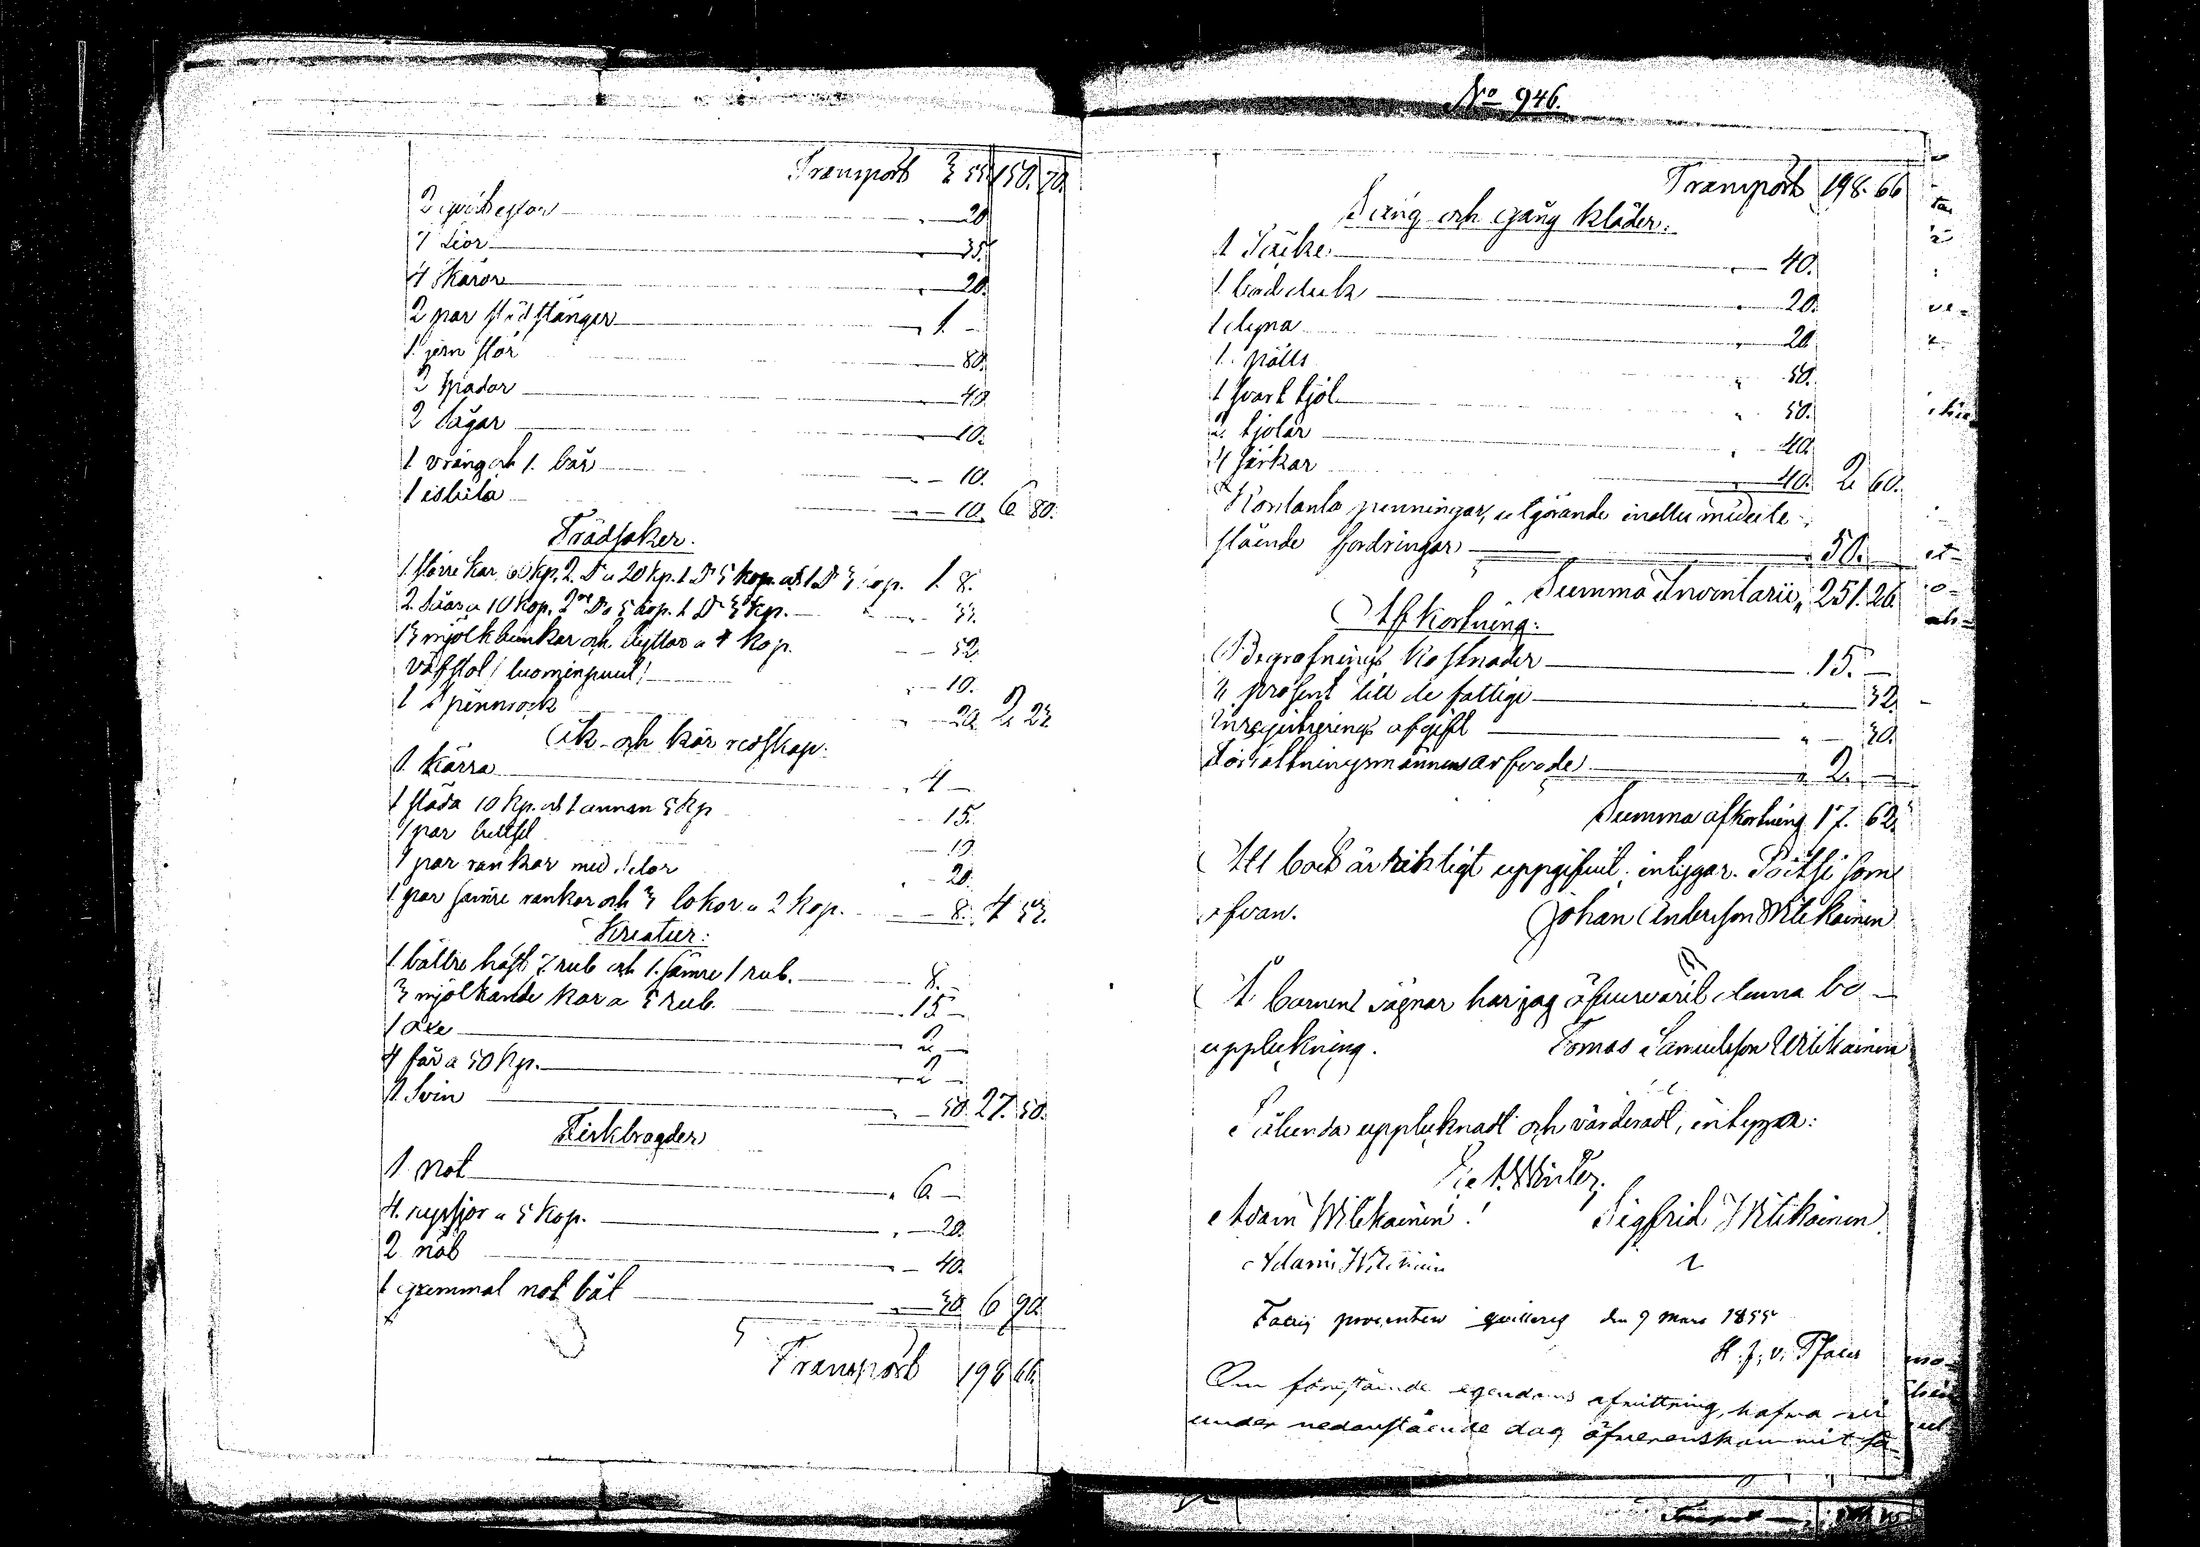 Transport 3 55 150. 70.
20
7 Lior 35.
4 Skäror 20.
2 par stödstänger 1. -
1 jern stör 80.
2 Spador 40
2 Sågar 10.
1 vräng och 1. bår 10.
1 isbila 10. 6 80.
Trädsaker.
1 större kar 60 kp, 2. Do a 20 kp. 1 Do 5 kop. och 1 Do 3 kop. 1. 8.
2 Såar a 10 kop, 2ne Do 5 kop. 1 Do 3 kp. 33.
13 mjölkbunkar och byttor a 4 kop. 52
väfstol / luominpuut / 10.
1 spinnrock 20. 2 23
Åk- och kör redskap.
1 Kärra 4 -
1 släda 10 kp. och 1 annan 5 kp 15.
1 par betsel 10
1 par rankor med selor 20.
1 par sämre rankor och 3 lokor a 2 kop. 8. 4 53.
Kreatur:
1 bättre häst 7 rub och 1. sämre 1 rub. 8. -
3 mjölkande kor a 5 rub. 15 -
1 oxe 2 -
4 får a 50 kp. 2 -
1 Svin 50. 27. 50.
Fiskbragder
1 Not 6 -
4. ryssjor a 5 kop. 20.
2 nät 40.
1 gammal not båt 30 6 90.
Transport 198 66
No 946.
Transport 198. 66
Säng och gång kläder.
1 Täcke 40.
1 bordduk 20.
1 dyna 20
1. pälts 50.
1 svart kjol 50.
2. kjolar 40.
4 särkar 40. 2 60.
Kontanta penningar, utgörande
stående fordringar 50. -
Summa Inventarii, 251. 26
Afkortning:
Begrafnings kostnader 15. -
procent till de fattiga 32.
Inregistrerings afgift 30.
Förrättningsmännens arfvode 2 -
Summa afkortning 17. 62.
Att boet är riktigt uppgifvit, intygar. Poitsi som
ofvan. Johan Andersson Wilikainen
Å barnens vägnar har jag öfvervarit denna bo-
uppteckning. Tomas Samuelsson Wilikainen
Sålunda upptecknadt och värderadt, intygar:
Adam Wilikainen! Sigfrid Wilikainen
Fattig procenten qvitteras den 9 Mars 1855
H. J. v. Pfaler
Om förestående egendoms afvittring, hafva vi
under nedanstående dag öfverenskommit så